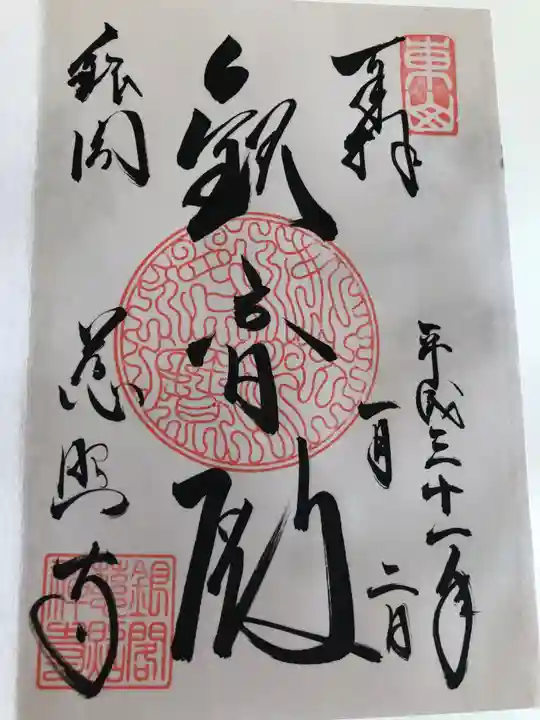 東山
奉拝
平成三十一年
一月
二日
観音殿
銀閣
慈照寺
銀閣
慈照
禅寺